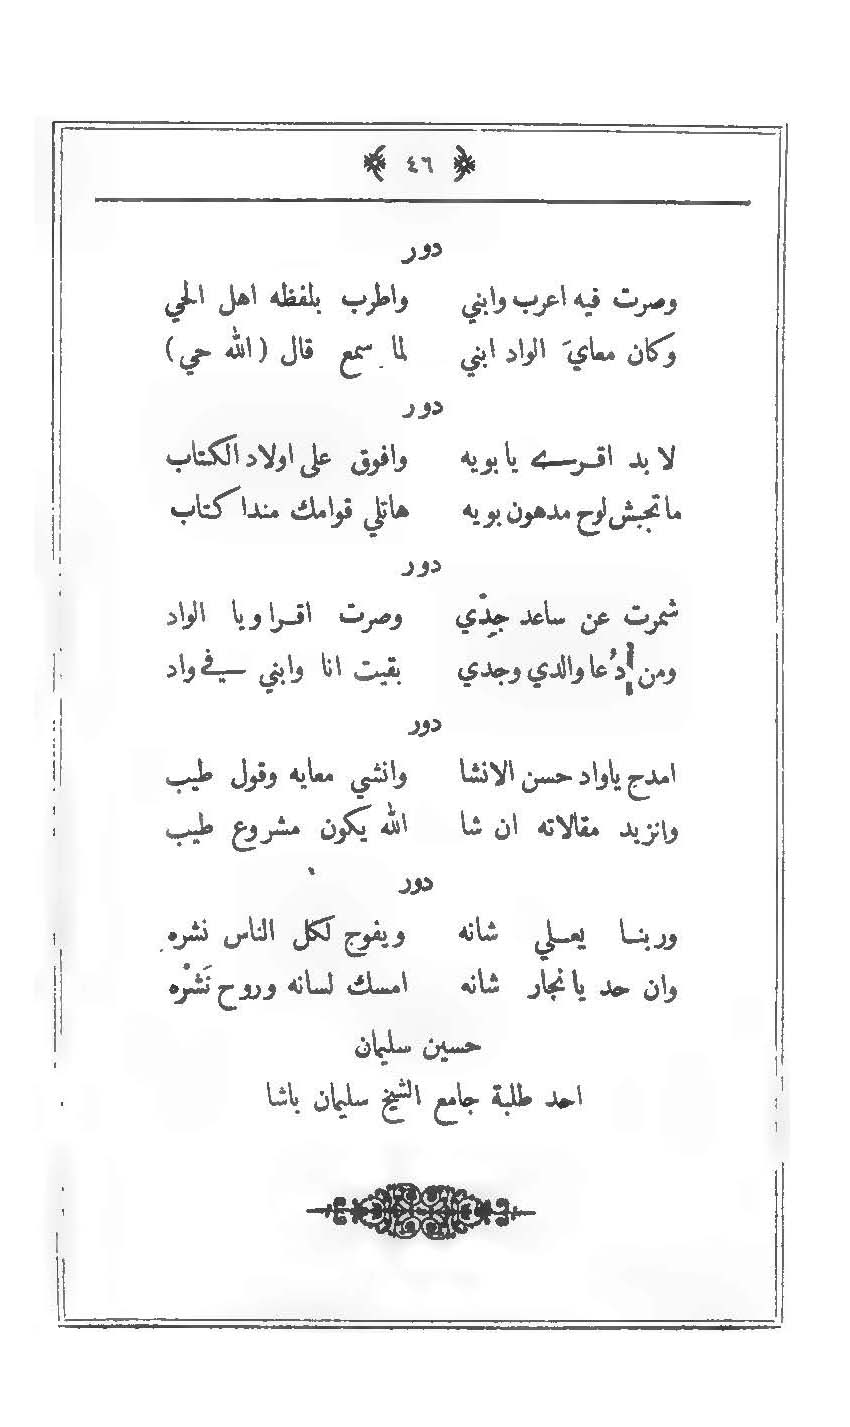 ٤٦
دور
وصرت فيه اعرب وابني واطرب بلفظه اهل الحي
وكان معايَ الواد ابني لما سمع قال (الله حي)
دور
لا بد اقرے يا بويه وافوق على اولاد الكتاب
ماتجبش لوح مدهون بويه هاتلي قوامك منداكتاب
دور
شمرت عن ساعد جِدّي وصرت اقرا ويا الواد
ومن دُعا والدي وجدي بقيت انا وابني في واد
دور
امدح ياواد حسن الانشا وانشي معايه وقول طيب
وانزيد مقالاته ان شا الله يكون مشروع طيب
دور
وربنا يعلي شانه ويفوح لكل الناس نشره
وان حد يانجار شانه امسك لسانه وروح نَشْره
حسين سليمان
احد طلبة جامع الشيخ سليمان باشا